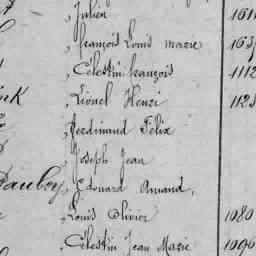 Julien 161
françois Louis marie 163
Célestin françois 1112
Lionel Henri 1123
Ferdinand Félix
Joseph Jean
Edouard Armand,
Louis Olivier 1080
Célestin Jean Marie 1090